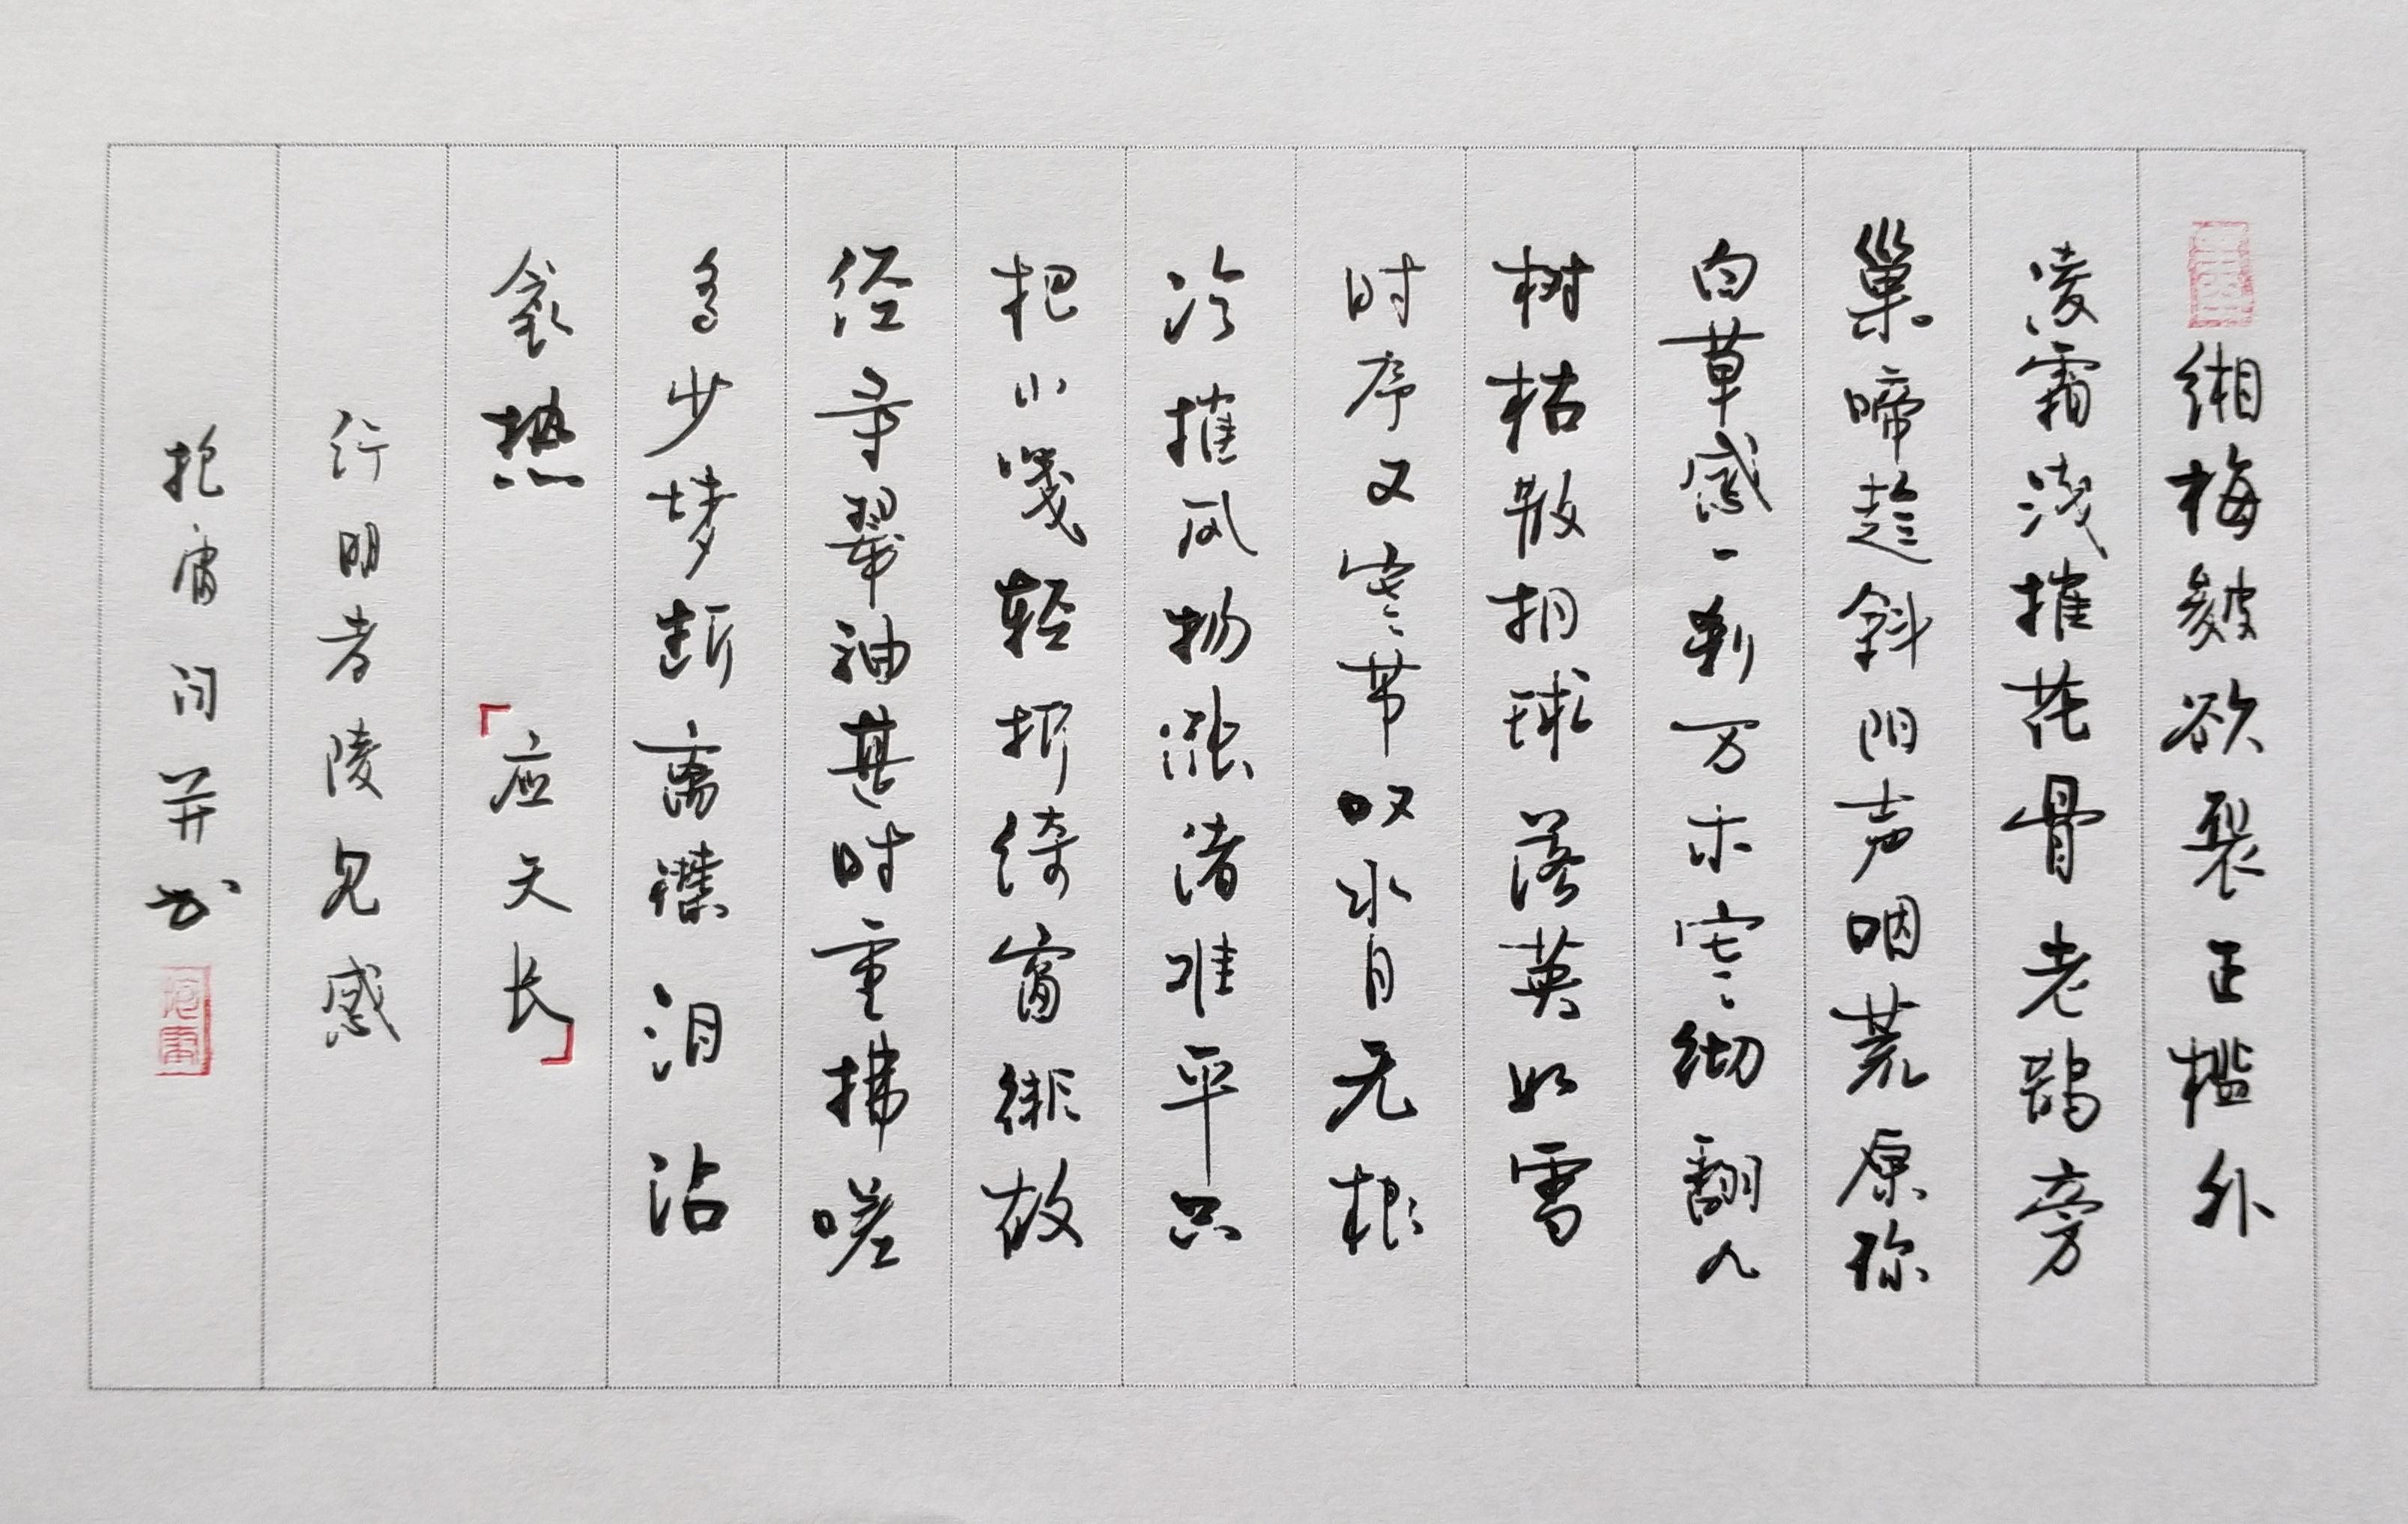 缃梅皴欲裂正槛外
凌霜浅摧花骨老鹊旁
巢啼趁斜阳声咽荒原弥
白草感一刹万木寒彻翻
树枯散捐球落英如雪
时序又寒节叹水月无根
冷摧风物涨渚准平只
把小笺轻折绮窗故
径寻翠袖甚时重拂嗟
多少梦断离襟泪沾
衾热 「应天长」
行明孝陵见感
抱庸并书